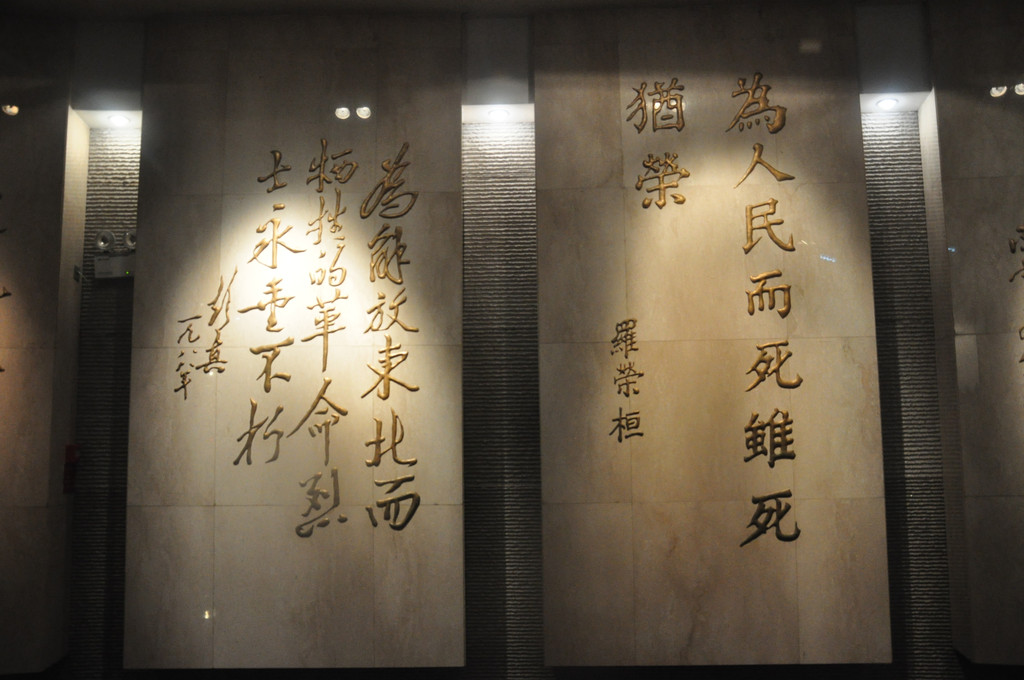 為人民而死雖死
猶榮
羅榮桓
為解放東北而
牺牲的革命烈
士永垂不朽
彭真
一九八八年